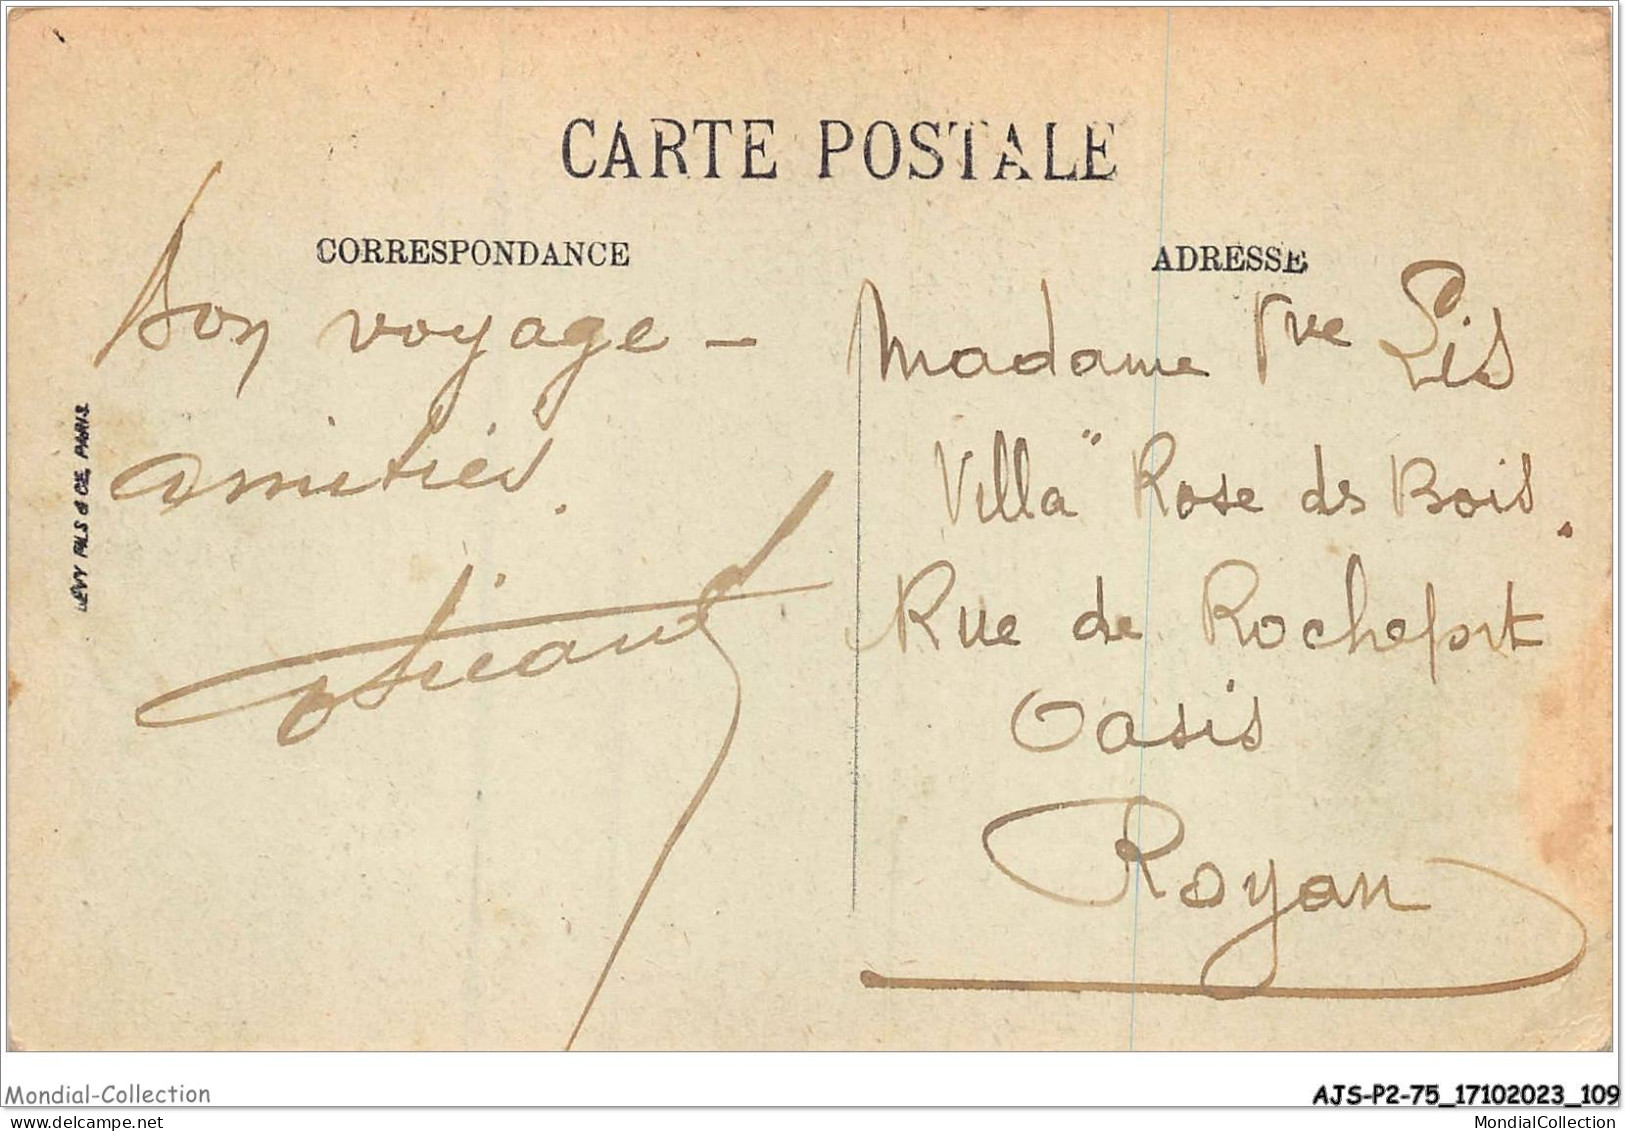 CARTE POSTALE
CORRESPONDANCE
ADRESSE
Bon voyage –
amitiés.
LÉVY FILS & CIE, PARIS.
Madame Vve Lis
Villa " Rose des Bois.
Rue de Rochefort
Oasis
Royan
Mondial-Collection
AJS-P2-75_17102023_109
www.delcampe.net
MondialCollection